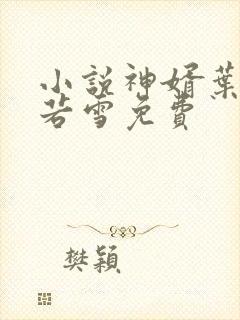 小說神婿葉
若雪免費
樊穎